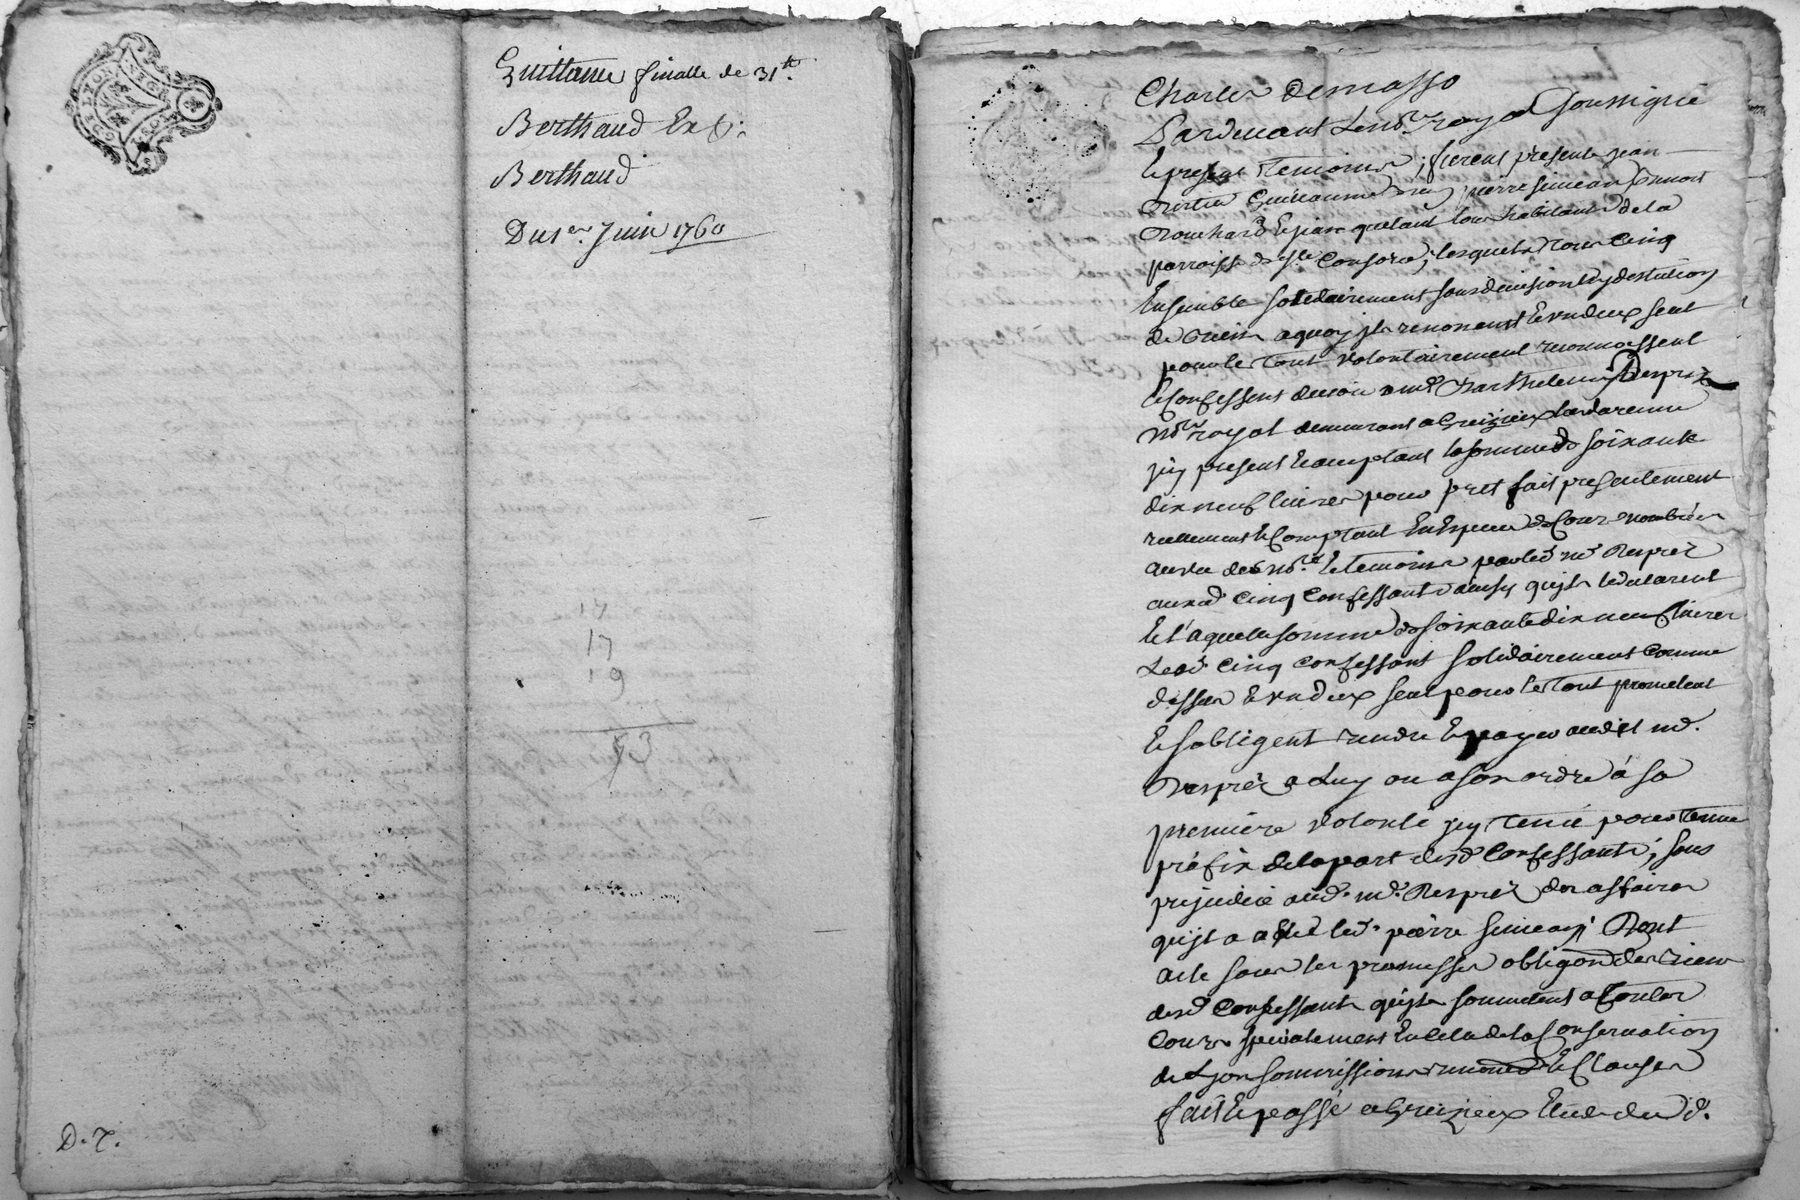 Quittance finalle de 31tt
Berthaud Exp:
Berthaud
Du 1er Juin 1760
17
17
19
53
D. T.
Charles Demasso
Pardevant Le no.re royal soussigné
Et présent temoins, furent présents jean
Guillaume pierre simeon benoit
habitants de la
parroisse de Ste Consorce, lesquels tous cinq
Ensemble solidairement sans division ny destution
de biens a quoy ils renoncent Et un deux seul
pour le tout volontairement reconnoissent
Et confessent devoir a md Barthelemy Desprez
no.re royal demeurant a Grezieux la varenne
jcy present Et acceptant la somme de soixante
dix neuf livres pour pret fait presentement
reellement Et comptant En Espece de Cour nombrée
au vu des no.re Et temoins par led. md Desprez
auxd. cinq confessants ainsy quils le declarent
Et laquelle somme de soixante dix neuf livres
Lesd. cinq confessant solidairement comme
dessus Et un deux seul pour le tout promettent
Et sobligent rendre Et payer audit md.
Desprez a Luy ou a son ordre á sa
première volonté jcy tenu pour terme
préfix de la part desd. Confessants, sans
prejudice aud. md. Desprez des affaires
qu'il a a led. pierre simeon, Dont
acte sous les promesses obligaõn des biens
desd. Confessants quils soumettent a toutes
Cours specialement En celle de la Conservation
de Lyon soumissions renonciaõn Et Clauses
fait Et passé a Grezieux Etude dud.